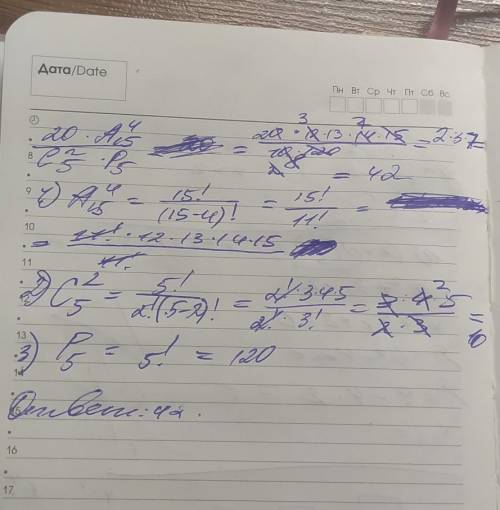 Дата/Date
Пн Вт Ср Чт Пт Сб Вс
8
20 · A₁₅⁴ / C₅² · P₅ = 20 · 12 · 13 · 14 · 15 / 10 · 120 = 2·3·7
= 42
9
1) A₁₅⁴ = 15! / (15-4)! = 15! / 11! =
10
= 11! · 12 · 13 · 14 · 15 / 11!
11
2) C₅² = 5! / 2!(5-2)! = 2! · 3·4·5 / 2! · 3! = 3 · 4 · 5 / 2 · 3 =
13
3) P₅ = 5! = 120
14
Ответ: 42.
16
17